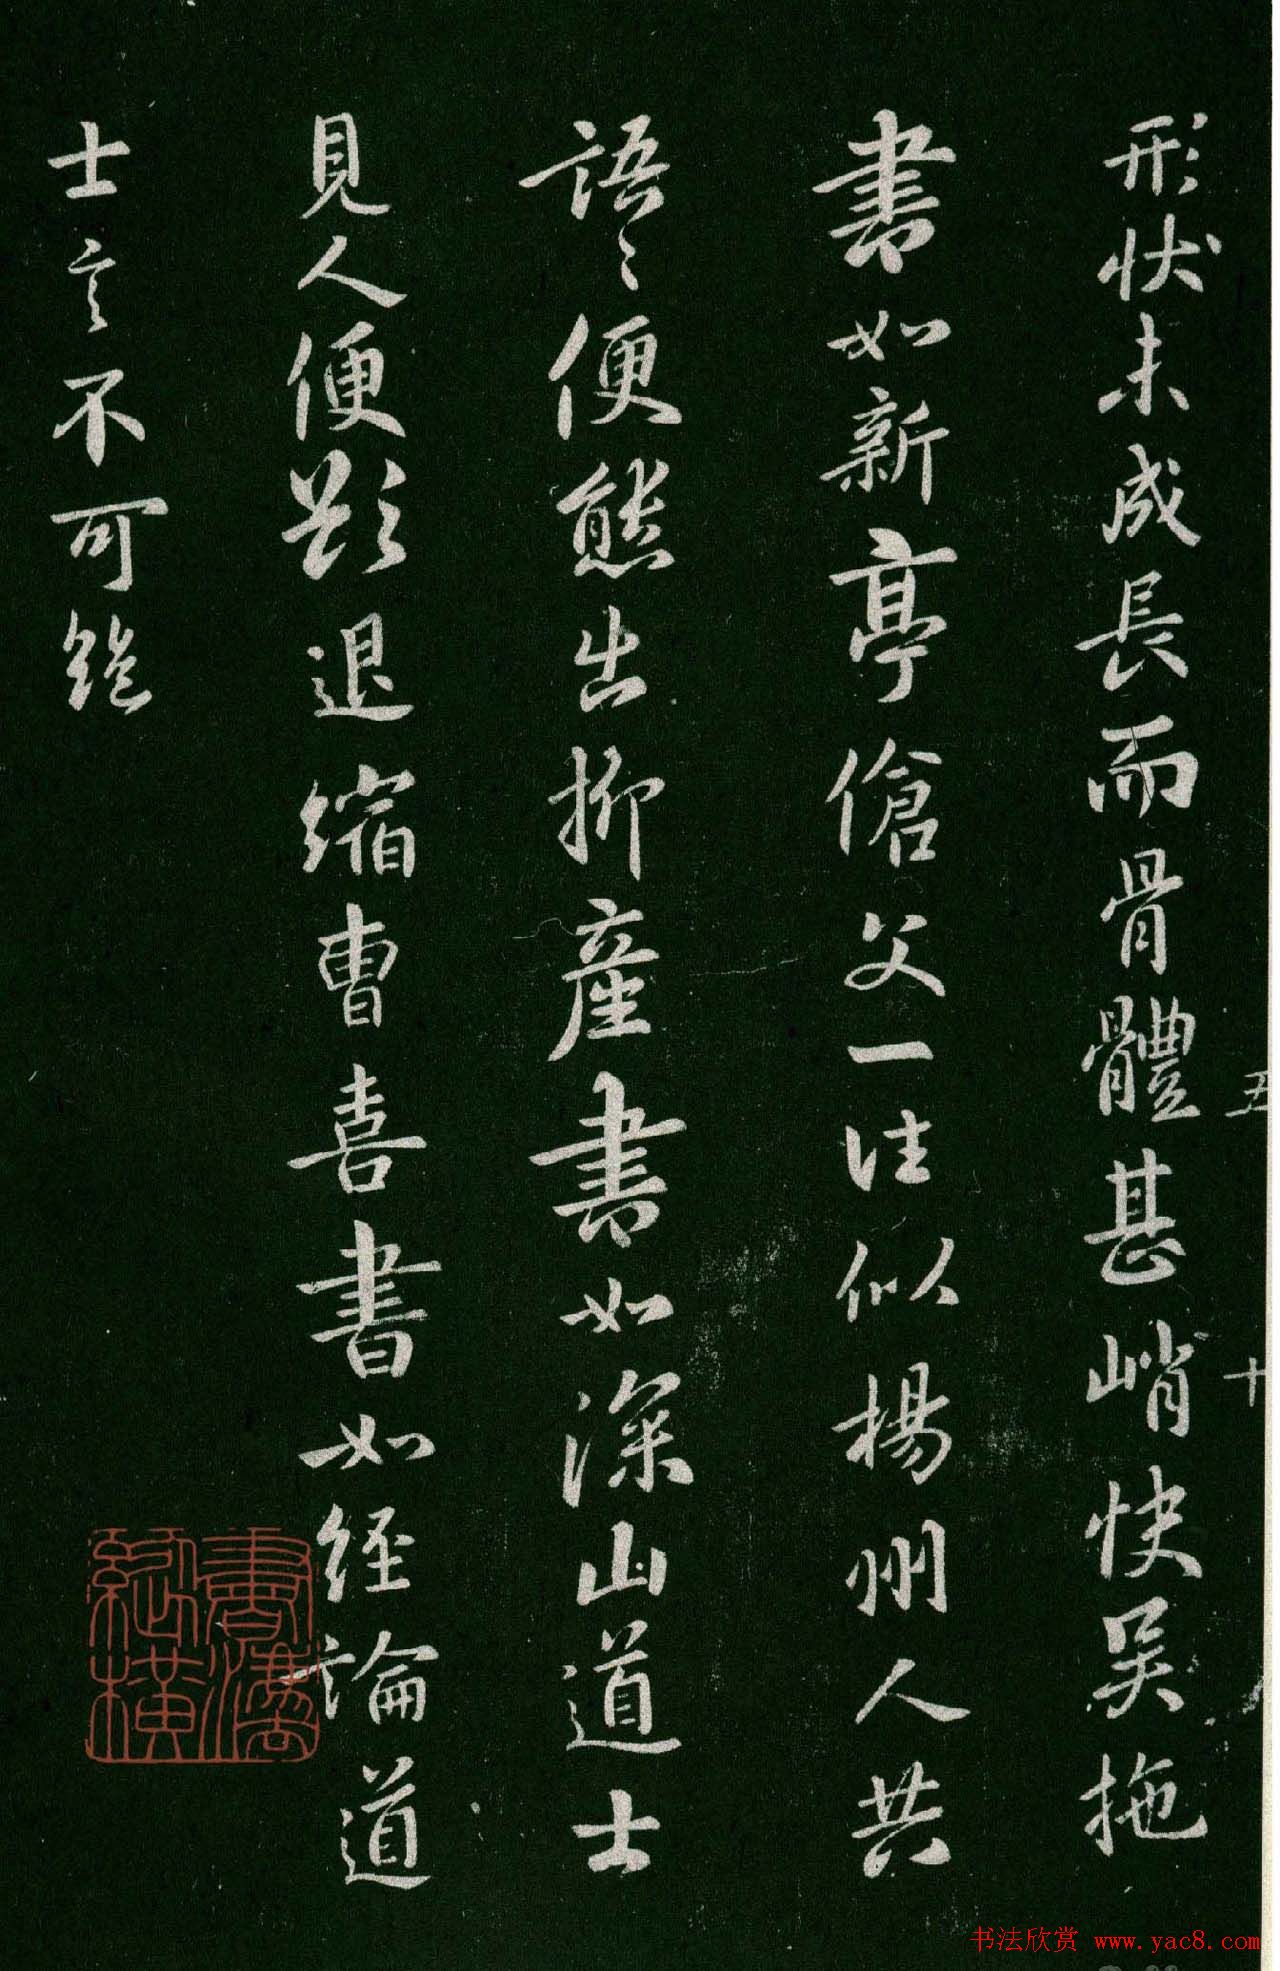 形狀未成長而骨體甚峭快吳拖
書如新亭傖父一往似揚州人共
語〻便態出柳產書如深山道士
見人便欲退縮曹喜書如經論道
士言不可絕
五
十
書法欣赏 www.yac8.com